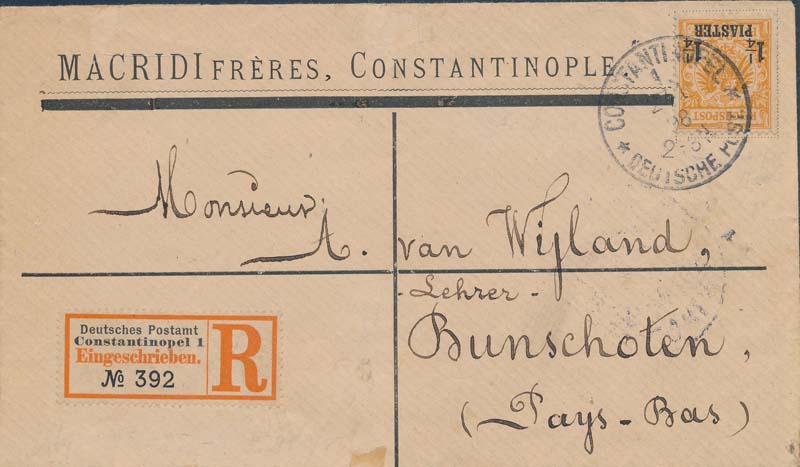 MACRIDI FRÈRES, CONSTANTINOPLE
1¼ 1¼
PIASTER
REICHSPOST
CONSTANTINOPEL 1
98
2-3N
* DEUTSCHE POST *
Monsieur
A. van Wijland,
- Lehrer -
Bunschoten,
(Pays-Bas)
Deutsches Postamt
Constantinopel 1
Eingeschrieben.
№ 392
R